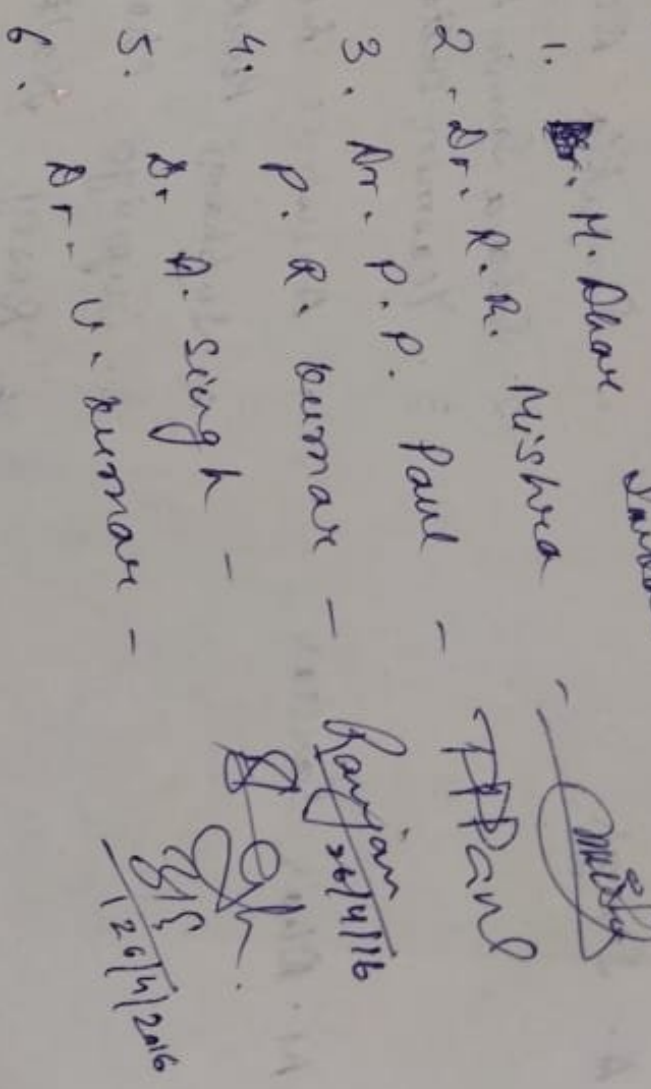 1. Dr. M. Dhar
2. Dr. R. R. Mishra -
3. Dr. P. P. Paul - PPPaul
4. P. R. Kumar - Ranjan 26/4/16
5. Dr A. Singh -
6. Dr. U. Kumar - 26/4/2016